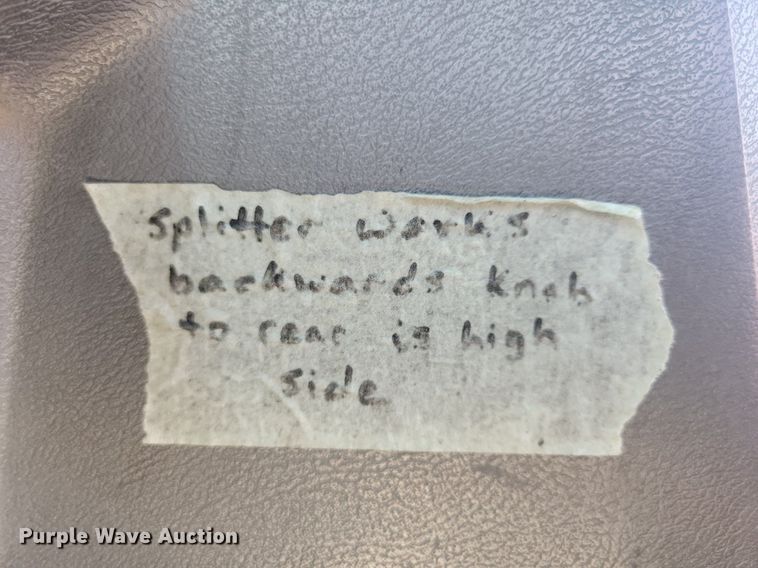 Splitter works
backwards knob
to rear is high
side
Purple Wave Auction